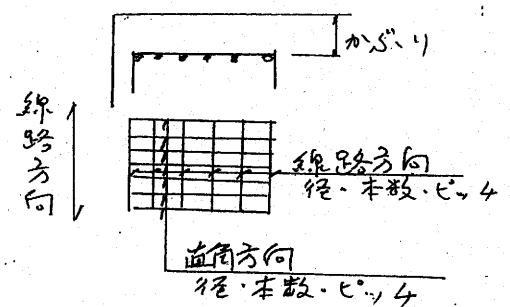 かぶり
線路方向
線路方向
径・本数・ピッチ
直角方向
径・本数・ピッチ